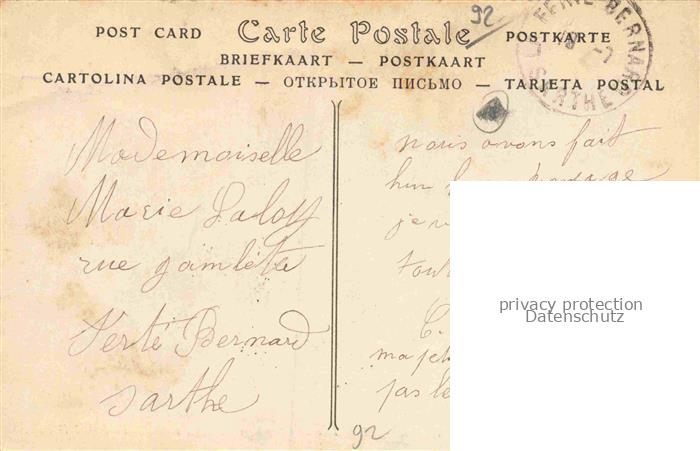 92
POST CARD Carte Postale POSTKARTE
BRIEFKAART — POSTKAART
CARTOLINA POSTALE — ОТКРЫТОЕ ПИСЬМО — TARJETA POSTAL
FERTE-BERNARD
SARTHE
Mademoiselle
Marie
rue gambéta
Ferté Bernard
Sarthe
nous avons fait
hun
je
tout
pas le
92
privacy protection
Datenschutz